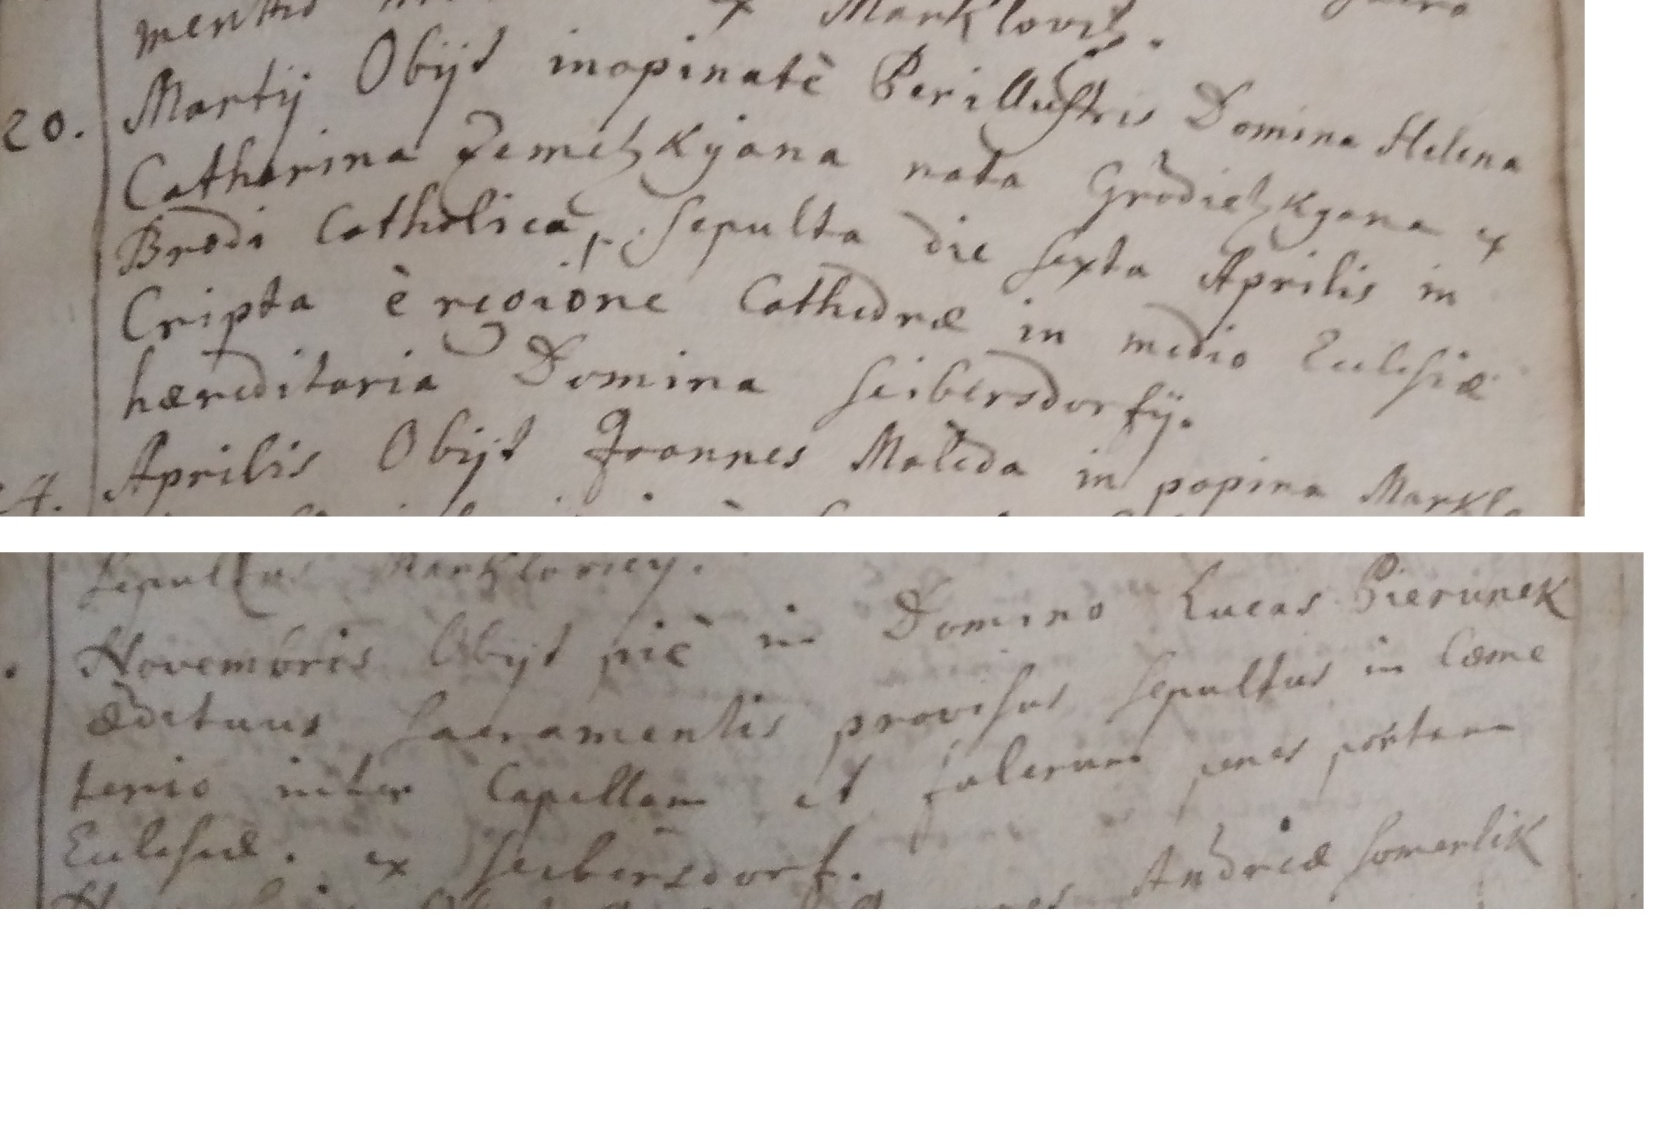 Marklovit.
20. Martij Obijt inopinatè Perillustris Domina Helena
Catharina Zemetzkyana nata Grodietzkyana ex
Brodi Catholica, Sepulta die sexta Aprilis in
Cripta è regione Cathedræ in medio Ecclesiæ
hæreditaria Domina Seibersdorfij.
Aprilis Obijt Joannes Maleda in popina
Sepultus
Novembris Obijt piè in Domino Lucas Pierunek
ædituus Sacramentis provisus Sepultus in Cœme
terio inter Capellam et penes portam
Ecclesiæ. ex Seibersdorf.
Andreæ Somerlik